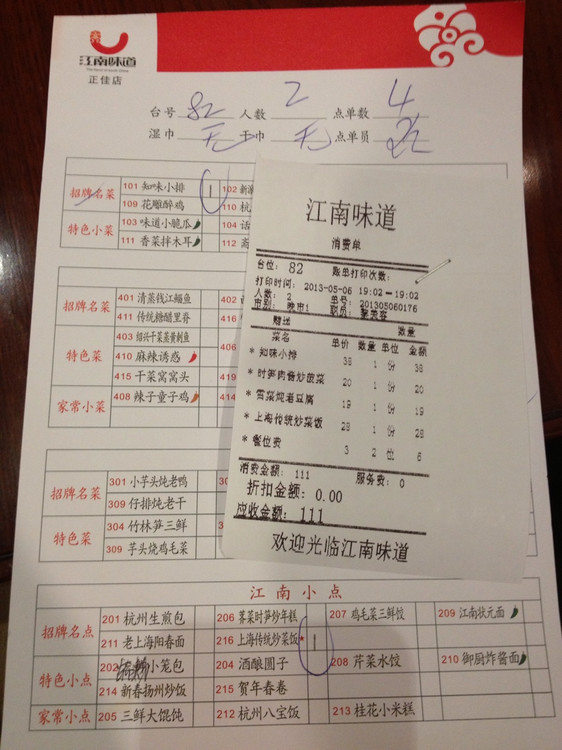 江南味道
正佳店
台号 82 人数 2 点单数 4
湿巾 无 干巾 无 点单员
招牌名菜 101 知味小排 1 102
109 花雕醉鸡 110 杭
特色小菜 103 味道小脆瓜 104 话
111 香菜拌木耳 112
401 清蒸钱江鳊鱼 402
招牌名菜 411 传统糖醋里脊 416
403 绍兴干菜蒸黄刺鱼
特色菜 410 麻辣诱惑
415 干菜窝窝头
家常小菜 408 辣子童子鸡 414
招牌名菜 301 小芋头炖老鸭
309 仔排炖老干
特色菜 304 竹林笋三鲜
309 芋头烧鸡毛菜
江南小点
招牌名点 201 杭州生煎包 206 荠菜时笋炒年糕 207 鸡毛菜三鲜饺 209 江南状元面
211 老上海阳春面 216 上海传统炒菜饭 1
特色小点 202 小笼包 204 酒酿圆子 208 芹菜水饺 210 御厨炸酱面
214 新春扬州炒饭 215 贺年春卷
家常小点 205 三鲜大馄饨 212 杭州八宝饭 213 桂花小米糕
江南味道
消费单
台位: 82 账单打印次数:
打印时间: 2013-05-06 19:02-19:02
人数: 2 单号: 201305060176
市别: 晚市1 职员: 黎芙蓉
赠送 数量
菜名 单价 数量 单位 金额
* 知味小排 38 1 份 38
* 时笋肉酱炒蔬菜 20 1 份 20
* 雪菜炖老豆腐 19 1 份 19
* 上海传统炒菜饭 28 1 份 28
* 餐位费 3 2 位 6
消费金额: 111 服务费: 0
折扣金额: 0.00
应收金额: 111
欢迎光临江南味道